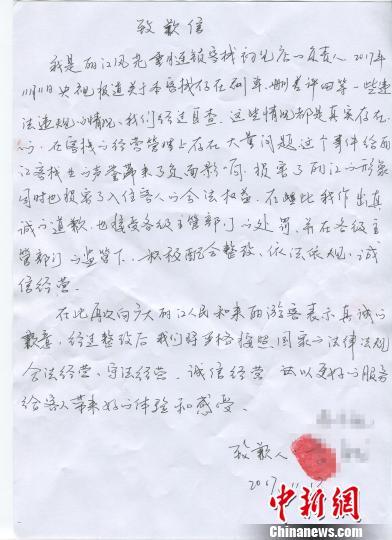 致歉信
我是丽江风花雪月连锁客栈初见店负责人，2017年
11月11日央视报道关于本客栈存在刷单、删差评四等一些违
法违规的情况，我们经过自查，这些情况都是真实存在
的，在客栈的经营管理上存在大量问题这个事件给丽
江客栈的声誉带来了负面影响，损害了丽江的形象
同时也损害了入住客人的合法权益，在此我作出真
诚的道歉，也接受各级主管部门的处罚，并在各级主
管部门的监管下，积极配合整改、依法依规、诚
信经营。
在此再次向广大丽江人民和来丽游客表示真诚的
歉意，经过整改后我们将严格按照国家的法律法规
合法经营、守法经营、诚信经营，以更好的服务
给客人带来好的体验和感受。
致歉人
2017.11.
中新网
www.chinanews.com